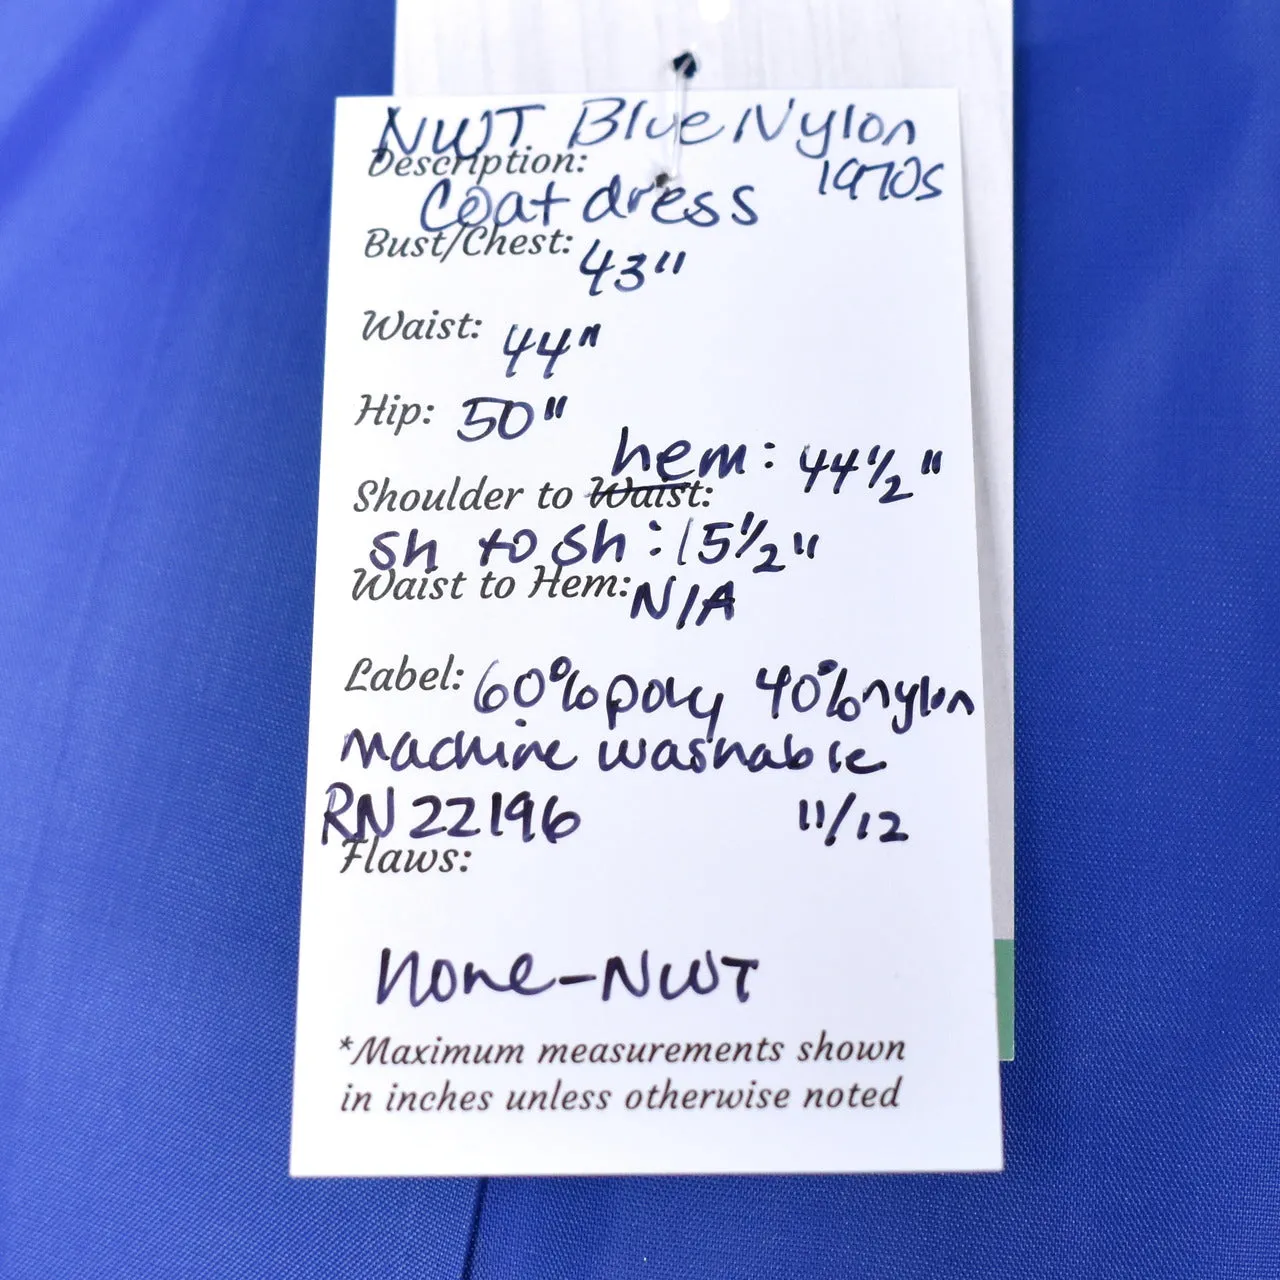 NWT Blue Nylon
Description:
1970s
Coat dress
Bust/Chest: 43"
Waist: 44"
Hip: 50"
hem: 44 1/2"
Shoulder to Waist:
sh to sh: 15 1/2"
Waist to Hem: N/A
Label: 60% poly 40% nylon
machine washable
RN 22196 11/12
Flaws:
none - NWT
*Maximum measurements shown
in inches unless otherwise noted